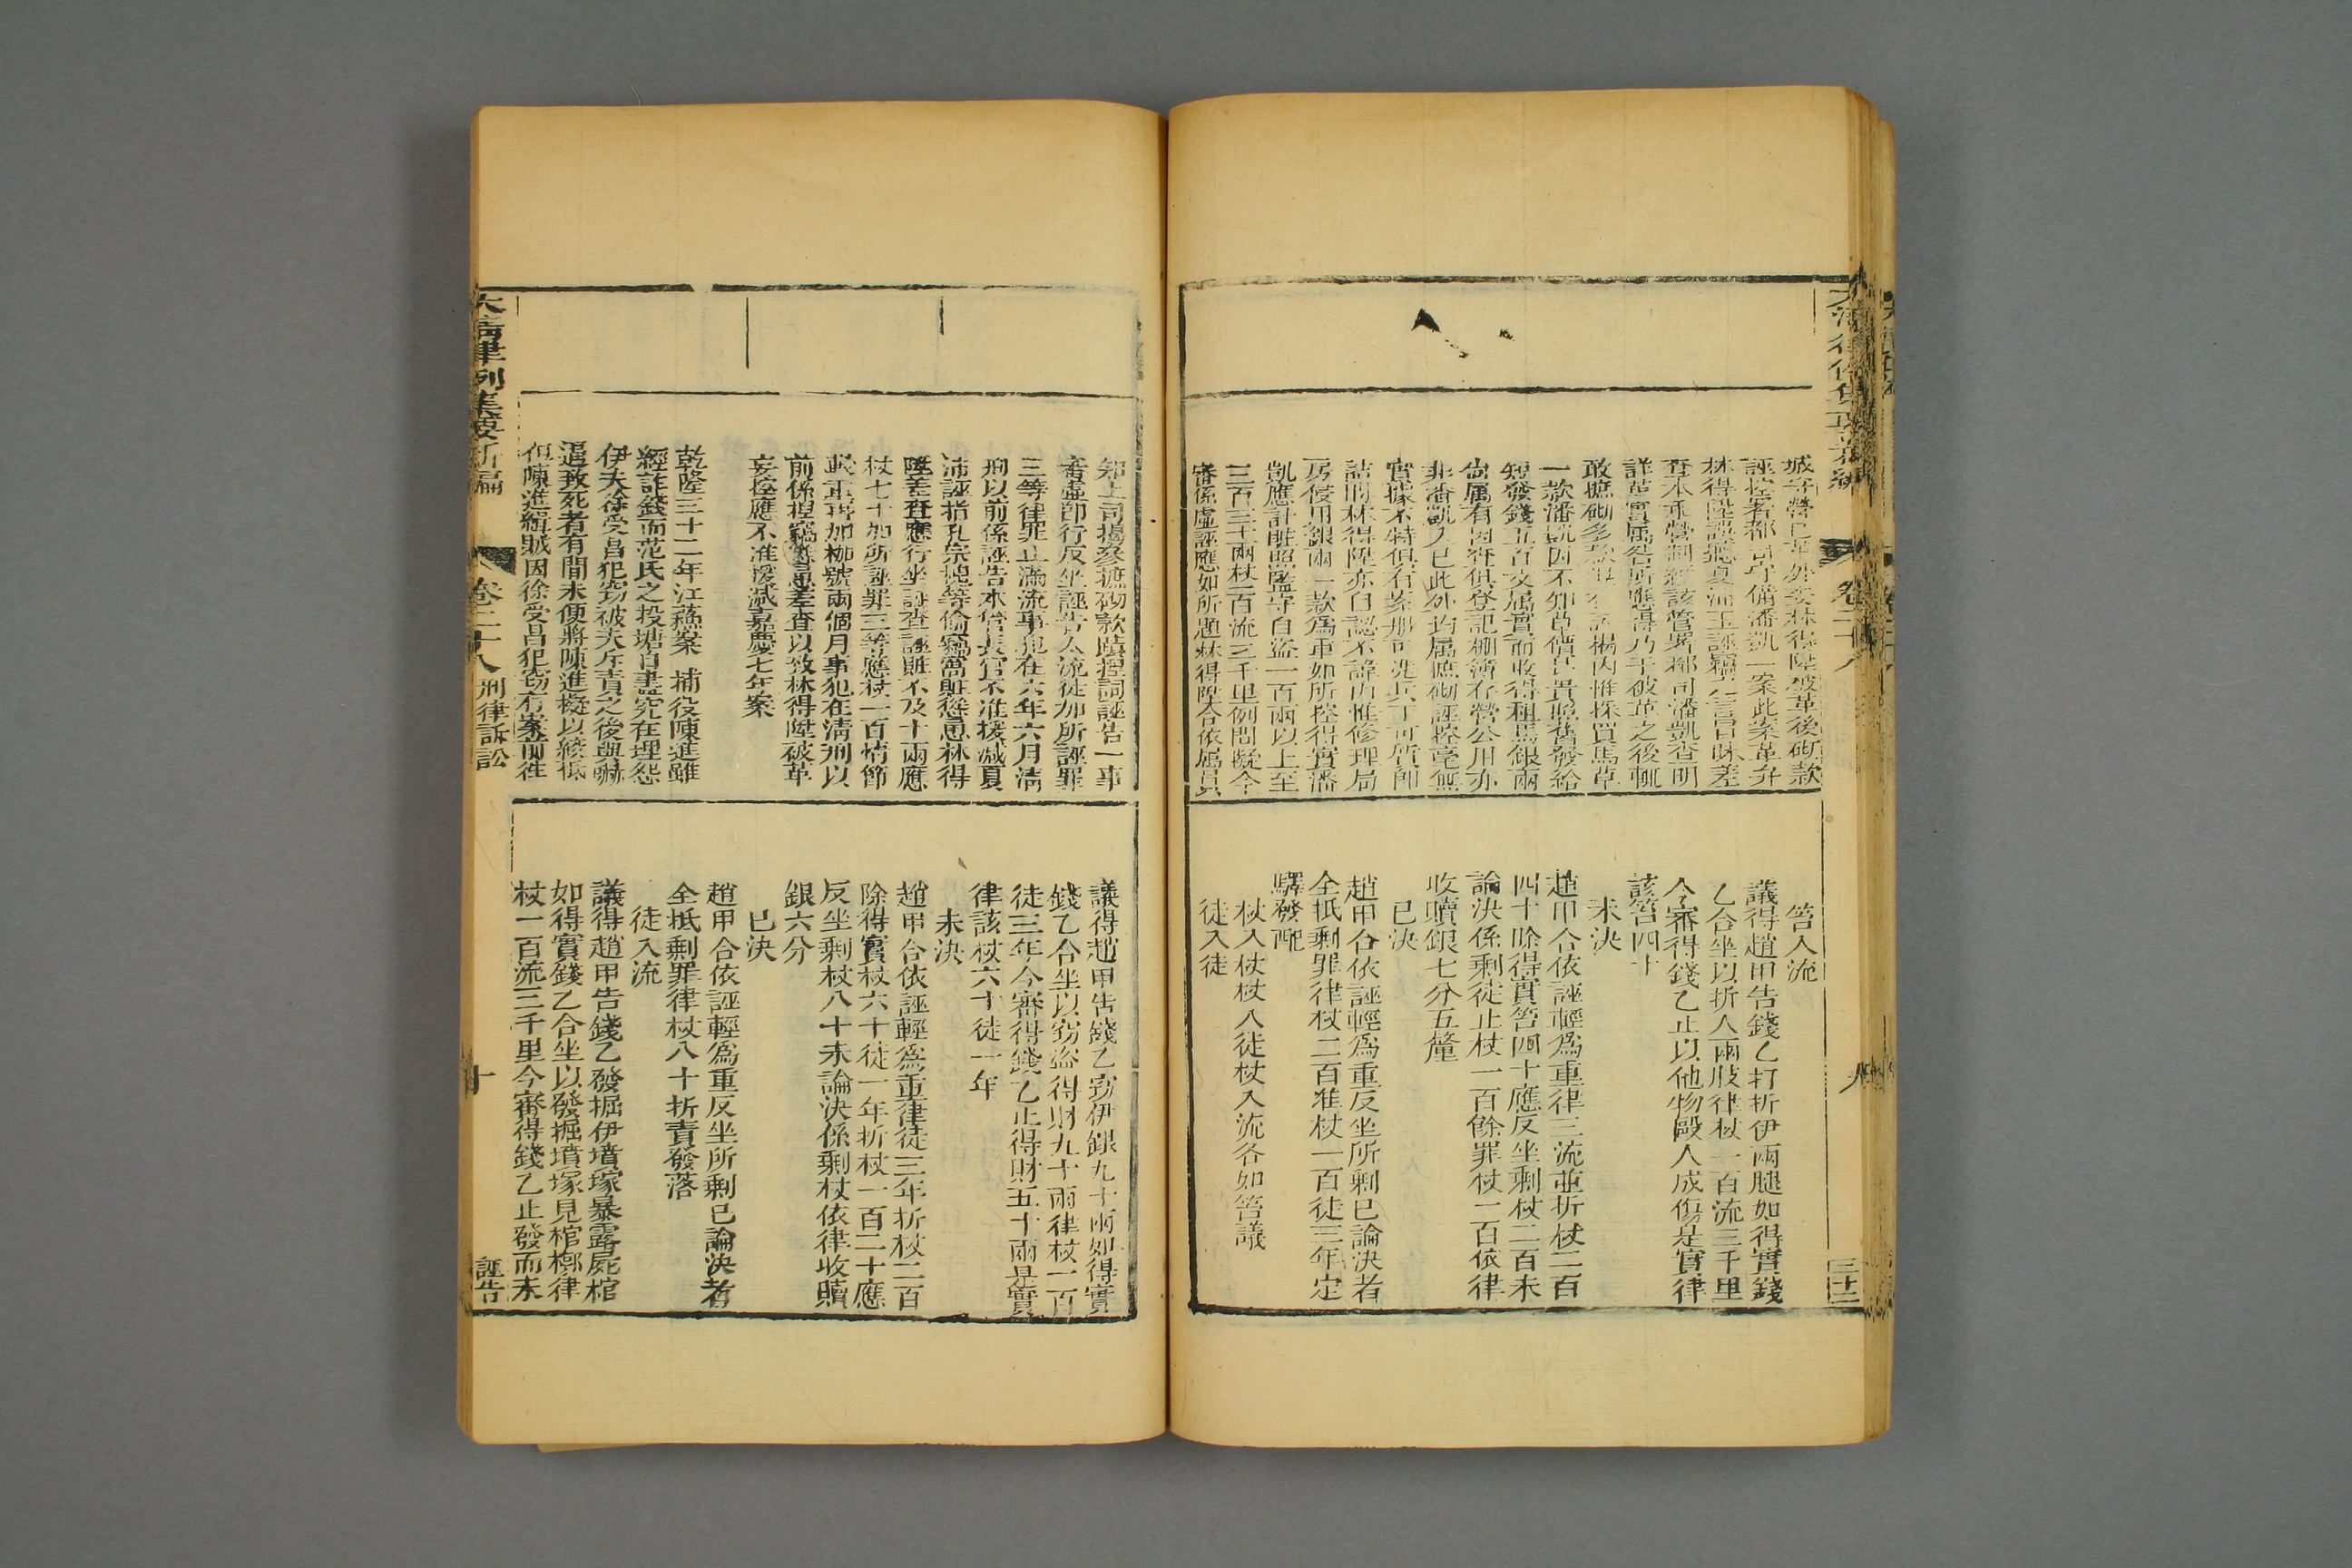 笞入流
議得趙甲告錢乙打折伊兩腿如得實錢
乙合坐以折人兩肢律杖一百流三千里
今審得錢乙止以他物毆人成傷是實律
該笞四十
未決
趙甲合依誣輕爲重律三流並折杖二百
四十除得實笞四十應反坐剩杖二百未
論決係剩徒止杖一百餘罪杖一百依律
收贖銀七分五釐
已決
趙甲合依誣輕爲重反坐所剩已論決者
全抵剩罪律杖二百准杖一百徒三年定
驛發配
杖入杖杖入徒杖入流各如笞議
徒入徒
卷二十八
三十二
城守營已革外委林得陞被革後砌款
誣控署都司守備潘凱一案此案革弁
林得陞誤聽夏沛玉誣竊
詳革實属咎所應得乃于被革之後輒
敢摭砌多款
一款潘凱因不知草價昂貴照舊發給
短發錢五百文属實而收得租馬銀兩
尙属有因存俱登記棚簿存營公用亦
非潘凱入已此外均属摭砌誣控毫無
實據不特俱有案册可
詰問林得陞亦自認不諱内惟修理局
房侵用銀兩一款爲重如所控得實潘
凱應計賍照監守自盜一百兩以上至
三百三十兩杖一百流三千里例問擬今
審係虛誣應如所題林得陞合依属員
知上司揭叅摭砌款蹟揑詞誣告一事
審虛卽行反坐誣告人流徒加所誣罪
三等律罪止滿流事犯在六年六月清
刑以前係誣告本管長官不准援减夏
沛誣指孔宗地等偷竊窩賍慫恿林得
陞差查應行坐誣查誣賍不及十兩應
杖七十加所誣罪三等應杖一百情節
較重再加枷號兩個月事犯在清刑以
前係揑竊慫恿差查以致林得陞破革
妄控應不准援减嘉慶七年案
乾隆三十二年江蘇案 捕役陳進雖
經詐錢而范氏之投塘自盡究在埋怨
伊夫徐受昌犯竊被夫斥責之後與嚇
逼致死者有間未便將陳進擬以絞抵
但陳進緝賊因徐受昌犯竊有案前往
議得趙甲告錢乙竊伊銀九十兩如得實
錢乙合坐以竊盜得財九十兩律杖一百
徒三年今審得錢乙止得財五十兩是實
律該杖六十徒一年
未決
趙甲合依誣輕爲重律徒三年折杖二百
除得實杖六十徒一年折杖一百二十應
反坐剩杖八十未論決係剩杖依律收贖
銀六分
已決
趙甲合依誣輕爲重反坐所剩已論決者
全抵剩罪律杖八十折責發落
徒入流
議得趙甲告錢乙發掘伊墳塚暴露屍棺
如得實錢乙合坐以發掘墳塚見棺槨律
杖一百流三千里今審得錢乙止發而未
大清律例集要新編
卷二十八 刑律訴訟
十
誣告